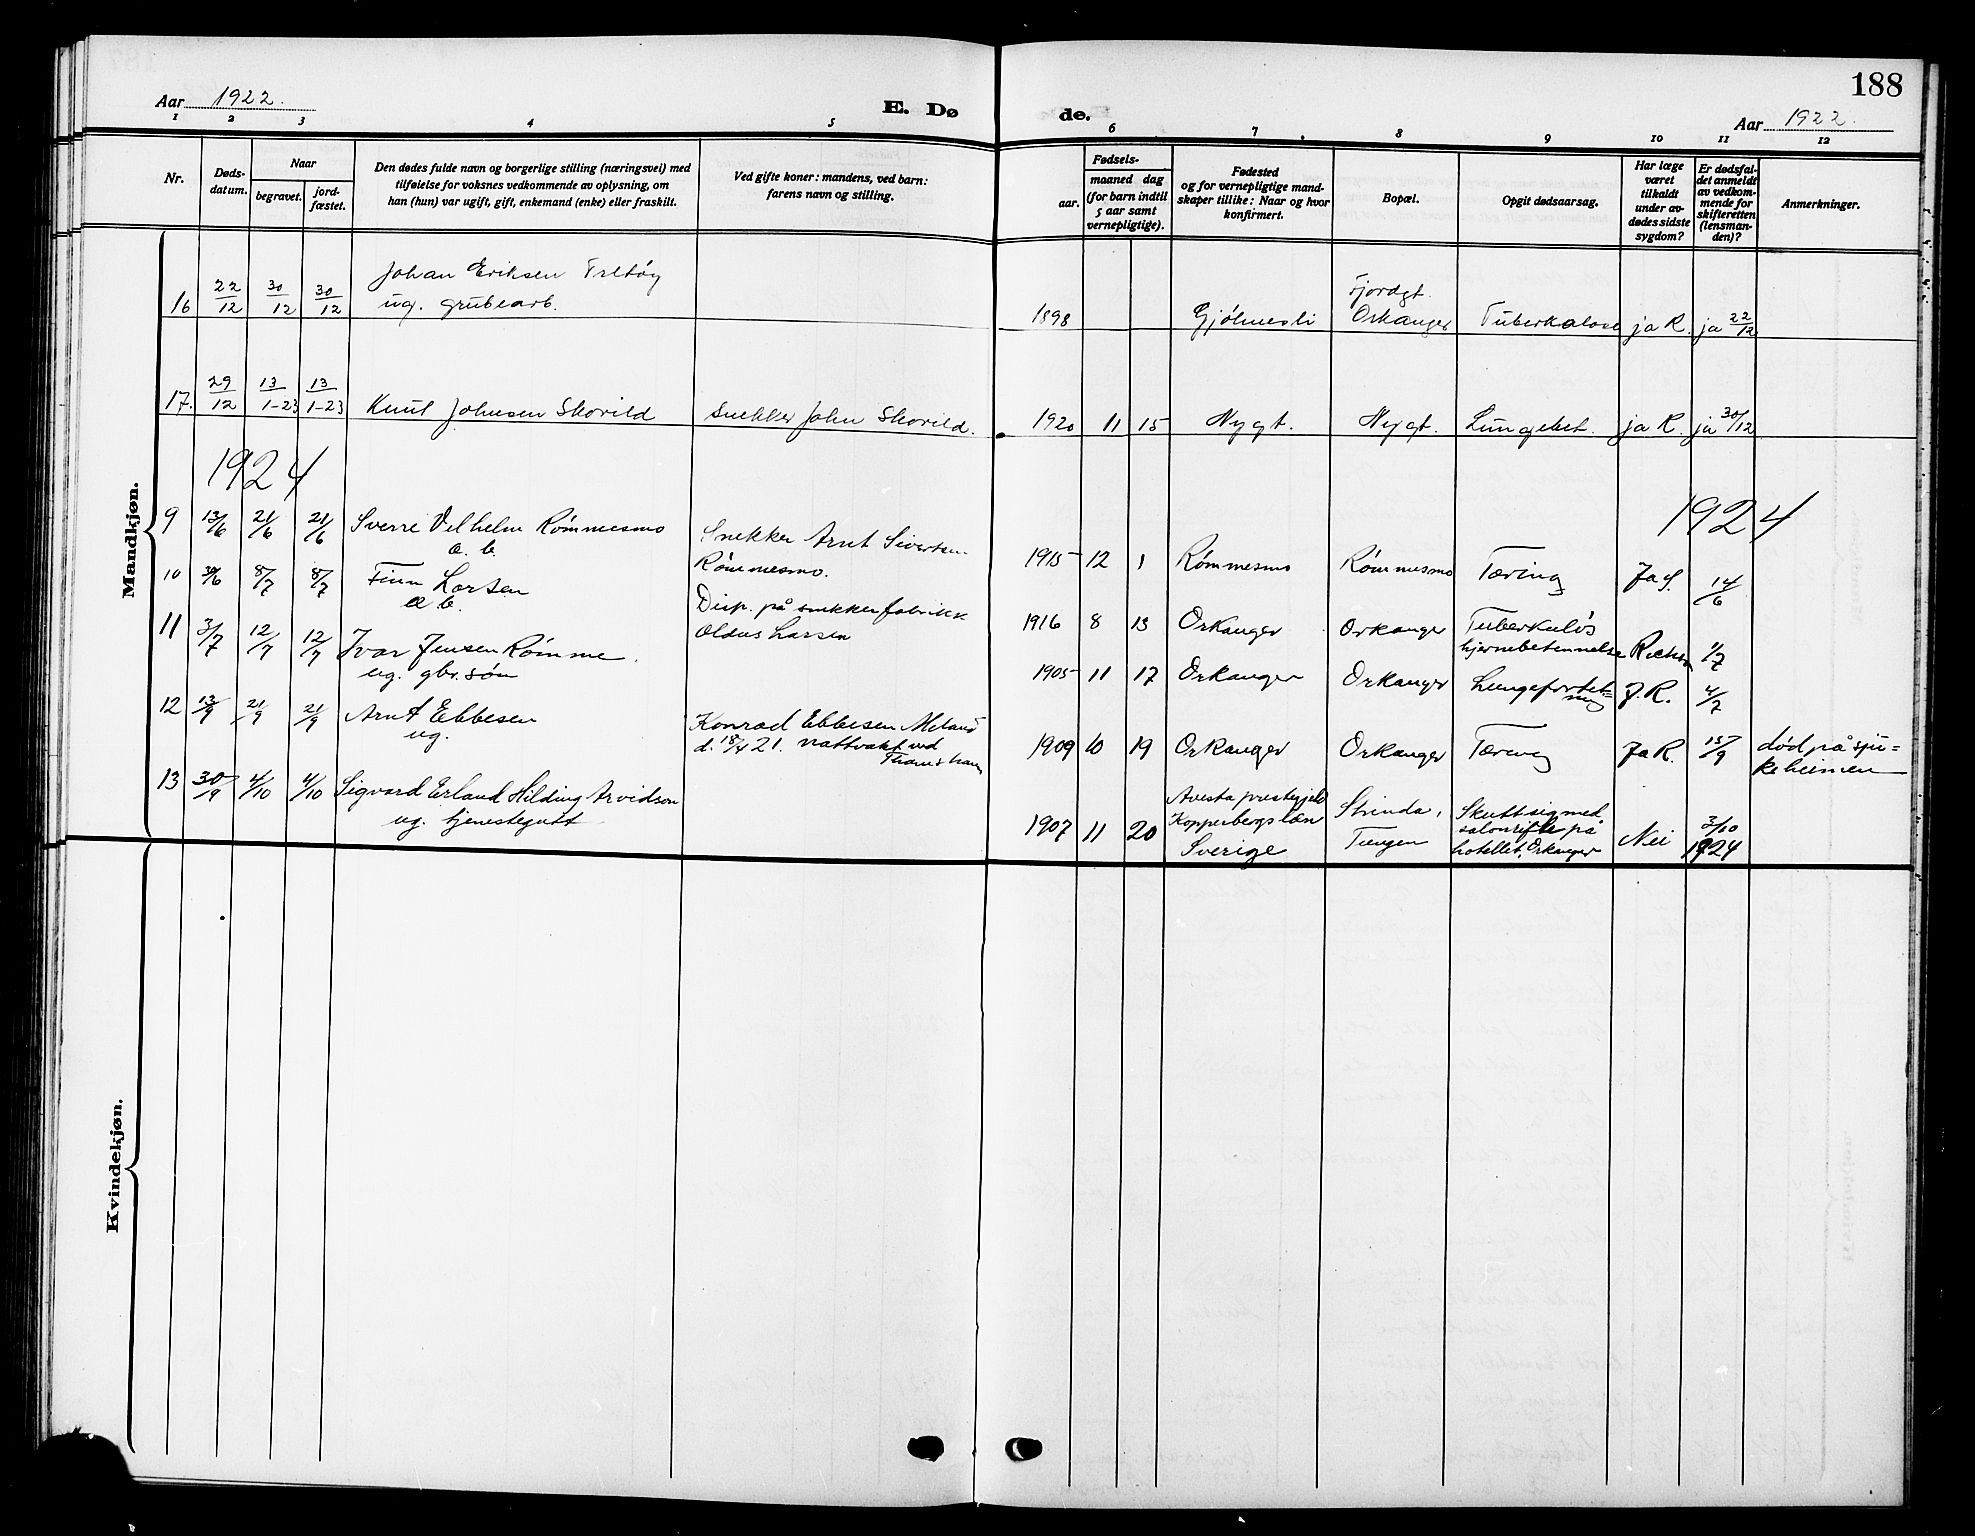 188
Aar 1922.
E. Dø
de.
Aar 1922.
1 2 3 4 5 6 7 8 9 10 11 12
Nr.
Døds-
datum.
Naar
begravet.
jord-
fæstet.
Den dødes fulde navn og borgerlige stilling (næringsvei) med
tilføielse for voksnes vedkommende av oplysning, om
han (hun) var ugift, gift, enkemand (enke) eller fraskilt.
Ved gifte koner: mandens, ved barn:
farens navn og stilling.
Fødsels-
aar.
maaned dag
(for barn indtil
5 aar samt
vernepligtige).
Fødested
og for vernepligtige mand-
skaper tillike: Naar og hvor
konfirmert.
Bopæl.
Opgit dødsaarsag.
Har læge
været
tilkaldt
under av-
dødes sidste
sygdom?
Er dødsfal-
det anmeldt
av vedkom-
mende for
skifteretten
(lensman-
den)?
Anmerkninger.
Mandkjøn.
16 22/12 30/12 30/12 Johan Eriksen
ug. grubearb.
1898 Gjølmesli Fjordgt.
Orkanger Tuberkulose ja R. ja 22/12
17. 29/12 13/1-23 13/1-23 Knut Johnsen Skorild Snekker John Skorild.
1920 11 15 Nygt. Nygt. Lungebet. ja R. ja 30/12
1924
1924
9 13/6 21/6 21/6 Sverre Vilhelm Rømmesmo
a. b.
Snekker Arnt Sivertsen
Rømmesmo.
1915 12 1 Rømmesmo Rømmesmo Tæring Ja S. 14/6
10 30/6 8/7 8/7 Finn Larsen
a b.
Disp. på snekkerfabrikk
Oldus Larsen
1916 8 13 Orkanger Orkanger Tuberkuløs
hjernebetennelse 1/7
11 3/7 12/7 12/7 Ivar Jensen Rømme.
ug. gbr. søn
1905 11 17 Orkanger Orkanger Lungefortet=
ning J. R. 4/7
12 13/9 21/9 21/9 Arnt Ebbesen
ug.
Konrad Ebbesen
d. 18/4 21. nattvakt ved
Thamshavn
1909 10 19 Orkanger Orkanger Tæring Ja R. 15/9 død på sju=
keheimen
13 30/9 4/10 4/10 Sigvard Erland Hilding Arvidson
ug. tjenestegutt
1907 11 20 Avesta prestegjeld
Kopperbergs læn
Sverige
Strinda,
Tungen
Skutt sig med
salonrifle på
hotellet, Orkanger
Nei 3/10
1924
Kvindekjøn.